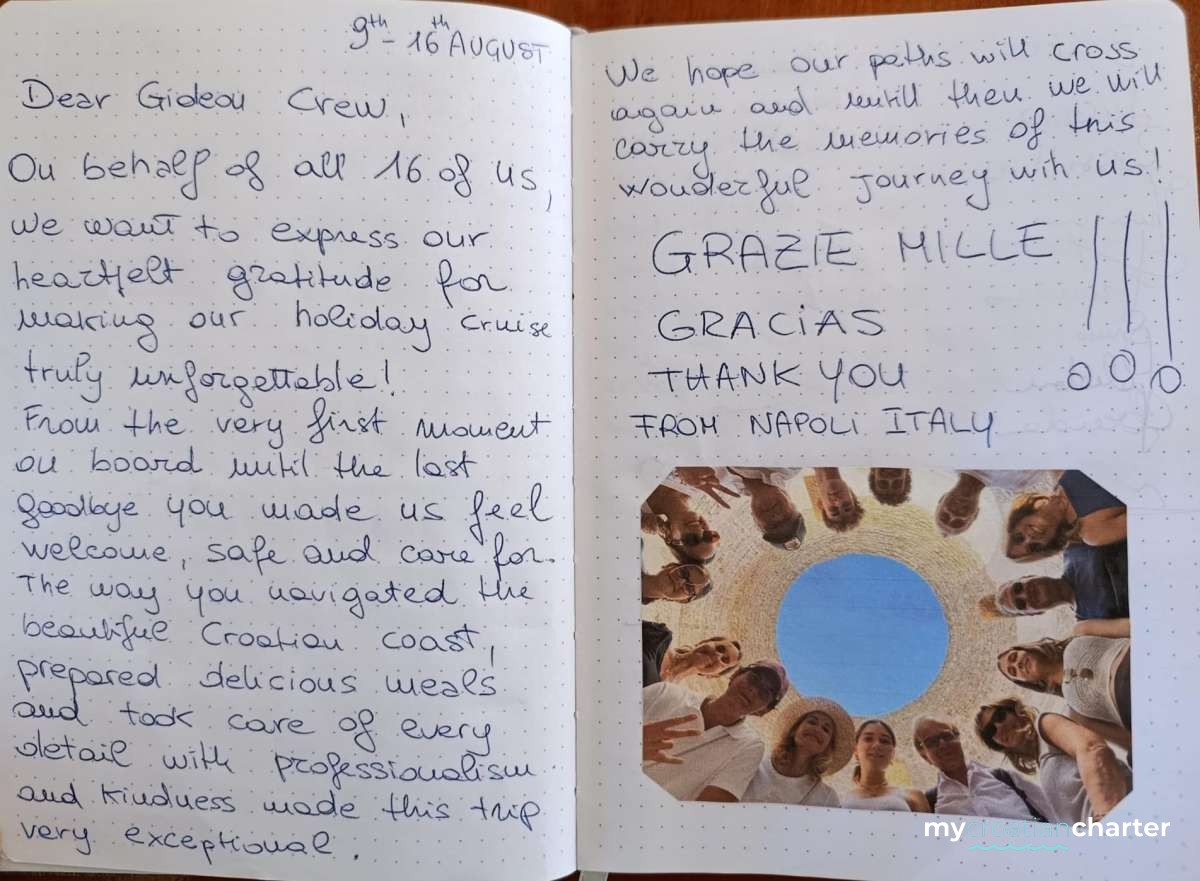 9th - 16th AUGUST
Dear Gideon Crew,
On behalf of all 16 of us,
we want to express our
heartfelt gratitude for
making our holiday cruise
truly unforgettable!
From the very first moment
on board until the last
goodbye you made us feel
welcome, safe and care for.
The way you navigated the
beautiful Croatian coast,
prepared delicious meals
and took care of every
detail with professionalism
and kindness made this trip
very exceptional.
We hope our paths will cross
again and untill then we will
carry the memories of this
wonderful journey wih us!
GRAZIE MILLE !!!
GRACiAS
THANK YOU
FROM NAPOLI ITALY
mycroatiancharter